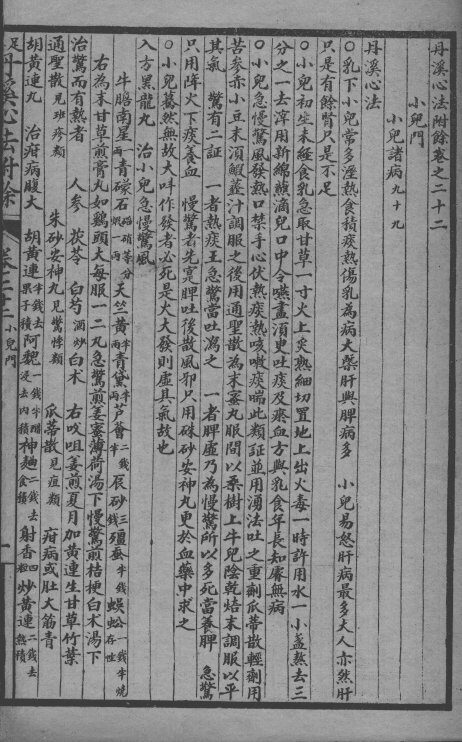 丹溪心法附餘卷之二十二
小兒門
小兒諸病九十九
丹溪心法
○乳下小兒常多溼熱食積痰熱傷乳為病大槩肝與脾病多　小兒易怒肝病最多大人亦然肝
只是有餘腎只是不足
○小兒初生未經食乳急取甘草一寸火上炙熟細切置地上出火毒一時許用水一小盞熬去三
分之一去滓用新綿蘸滴兒口中令嚥盡須臾吐痰及瘀血方與乳食年長知睿無病
○小兒急慢驚風發熱口禁手心伏熱痰熱咳嗽痰喘此類証並用湧法吐之重劑瓜蒂散輕劑用
苦參赤小豆末須蝦虀汁調服之後用通聖散為末蜜丸服間以桑樹上牛兒陰乾焙末調服以平
其氣　驚有二証　一者熱痰主急驚當吐瀉之　一者脾虛乃為慢驚所以多死當養脾　急驚
只用降火下痰養血　慢驚者先實脾吐後散風邪只用硃砂安神丸更於血藥中求之
○小兒驀然無故大呌作發者必死是火大發則虛其氣故也
入方黑龍丸　治小兒急慢驚風
牛膽南星一兩青礞石焰硝等分煅一兩天竺黃半兩青黛半兩芦薈二錢半辰砂三錢殭蚕半錢蜈蚣一錢半燒存性
右為末甘草煎膏丸如鷄頭大每服一二丸急驚煎姜蜜薄荷湯下慢驚煎桔梗白朮湯下
治驚而有熱者　人參　茯苓　白芍酒炒白朮　右㕮咀姜煎夏月加黃連生甘草竹葉
通聖散見斑疹類　朱砂安神丸見驚悸類　瓜蒂散見疸類　疳病或肚大筋青
胡黃連丸　治疳病腹大　胡黃連半錢去果子積阿魏一錢半醋浸去肉積神麯二錢去食積射香四粒炒黃連二錢去熱積
丹溪心法附餘　卷二十二　小兒門　一